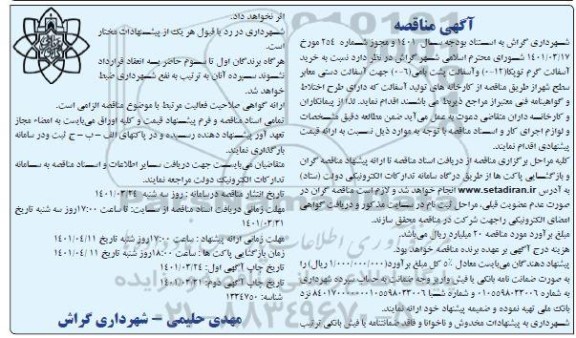 آگهی مناقصه
شهرداری گراش به استناد بودجه سال ۱۴۰۱ و مجوز شماره ۲۵۴ مورخ
۱۴۰۱/۰۳/۱۷ شورای محترم اسلامی شهر گراش در نظر دارد نسبت به خرید
آسفالت گرم توپکا(۱۲-۰) وآسفالت پشت بامی(۶-۰) جهت آسفالت دستی معابر
سطح شهراز طریق مناقصه از کارخانه های تولید آسفالت که دارای طرح اختلاط
و گواهینامه فنی معتبراز مراجع ذیربط می باشند اقدام نمایند. لذا از پیمانکاران
و کارخانه داران متقاضی دعوت به عمل می‌آید ضمن مطالعه دقیق مشخصات
و لوازم اجرای کار و اسناد مناقصه با توجه به موارد ذیل نسبت به ارائه قیمت
پیشنهادی اقدام نمایند.
کلیه مراحل برگزاری مناقصه از دریافت اسناد مناقصه تا ارائه پیشنهاد مناقصه گران
و بازگشایی پاکت ها از طریق درگاه سامانه تدارکات الکترونیکی دولت (ستاد)
به آدرس www.setadiran.ir انجام خواهد شد و لازم است مناقصه گران در
صورت عدم عضویت قبلی، مراحل ثبت نام در سایت مذکور و دریافت گواهی
امضای الکترونیکی راجهت شرکت در مناقصه محقق سازند.
مبلغ برآورد مورد مناقصه ۲۰ میلیارد ریال می‌باشد.
هزینه درج آگهی بر عهده برنده مناقصه خواهد بود.
پیشنهاد دهندگان می‌بایست معادل ۵٪ کل مبلغ برآورد(۱/۰۰۰/۰۰۰/۰۰۰ ریال) را
به صورت ضمانت نامه بانکی یا فیش واریز وجه ضمانت به حساب سپرده شهرداری
به شماره و شماره شبا نزد
بانک ملی تهیه نموده و ضمیمه پیشنهاد خود ارائه نمایند.
شهرداری به پیشنهادات مخدوش و ناخوانا و فاقد ضمانتنامه یا فیش بانکی ترتیب
اثر نخواهد داد.
شهرداری در رد یا قبول هر یک از پیشنهادات مختار
است.
هرگاه برندگان اول تا سوم حاضر به انعقاد قرارداد
نشوند سپرده آنان به ترتیب به نفع شهرداری ضبط
خواهد شد.
ارائه گواهی صلاحیت فعالیت مرتبط با موضوع مناقصه الزامی است.
تمامی اسناد مناقصه و فرم پیشنهاد قیمت و کلیه اوراق می‌بایست به امضاء مجاز
تعهد آور پیشنهاد دهنده رسیده و در پاکتهای الف – ب – ج ثبت ودر سامانه
بارگذاری نمایند.
متقاضیان می‌بایست جهت دریافت سایر اطلاعات و اسناد مناقصه به سامانه
تدارکات الکترونیک دولت مراجعه نمایند.
تاریخ انتشار مناقصه درسامانه : روز سه شنبه ۱۴۰۱/۰۳/۲۴
مهلت زمانی دریافت اسناد مناقصه از سایت: تا ساعت ۱۷:۰۰روز سه شنبه تاریخ
۱۴۰۱/۰۳/۳۱
مهلت زمانی ارائه پیشنهاد : ساعت ۱۷:۰۰روز شنبه تاریخ ۱۴۰۱/۰۴/۱۱
زمان بازگشایی پاکت ها : ساعت ۱۸:۰۰روز شنبه تاریخ ۱۴۰۱/۰۴/۱۱
تاریخ چاپ آگهی اول: ۱۴۰۱/۰۳/۲۴
تاریخ چاپ آگهی دوم: ۱۴۰۱/۰۳/۳۱
شناسه: ۱۳۳۴۷۵۰
مهدی حلیمی – شهرداری گراش